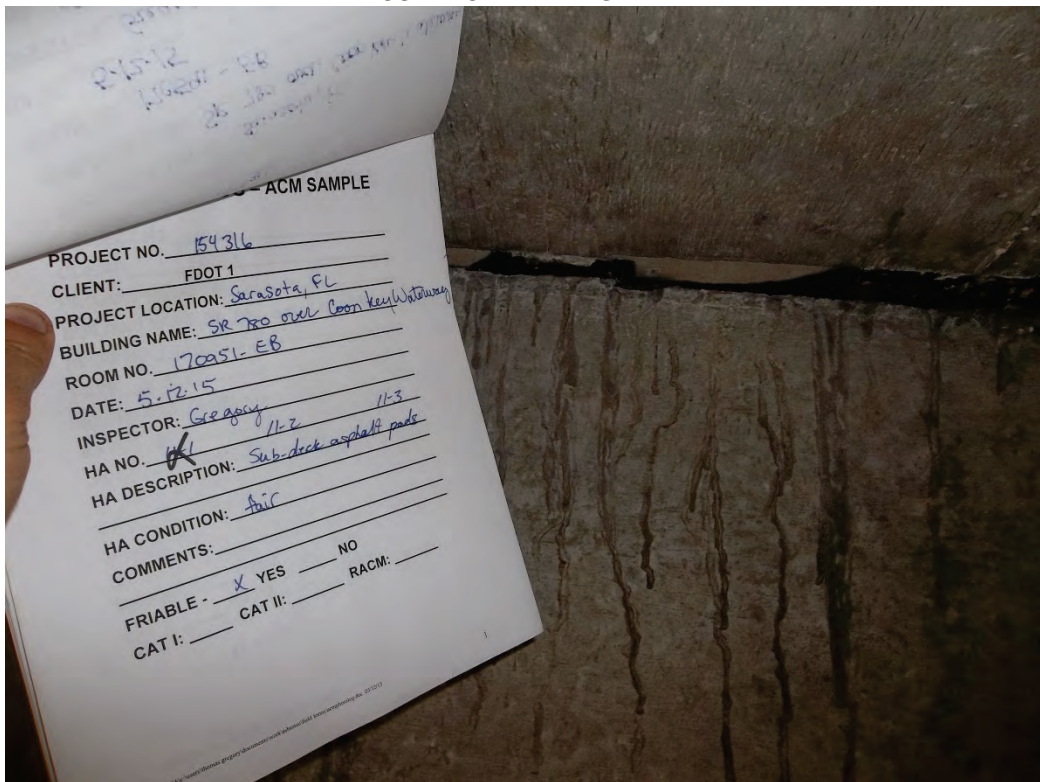 8-15-12
- EB
– ACM SAMPLE
PROJECT NO. 154316
CLIENT: FDOT 1
PROJECT LOCATION: Sarasota, FL
BUILDING NAME: SR 780 over Coon Key Waterway
ROOM NO. 170951-EB
DATE: 5.12.15
INSPECTOR: Gregory
HA NO. 11-1 11-2 11-3
HA DESCRIPTION: Sub-deck asphalt pads
HA CONDITION: fair
COMMENTS:
FRIABLE - X YES NO
CAT I: CAT II: RACM: